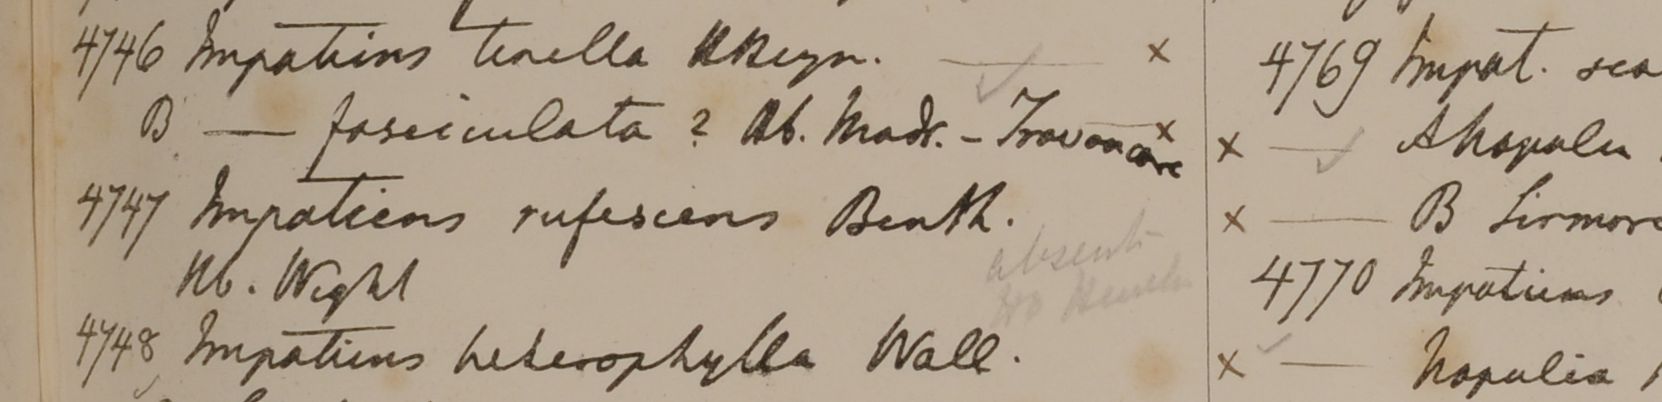 4746 Impatiens tenella HHeyn. — x
B — fasciculata ? Hb. Madr. - Travancore x
4747 Impatiens rufescens Benth.
Hb. Wight
absent
4748 Impatiens heterophylla Wall.
4769 Impat. sca
x —
x — B Sirmore
4770 Impatiens
x — Napalia